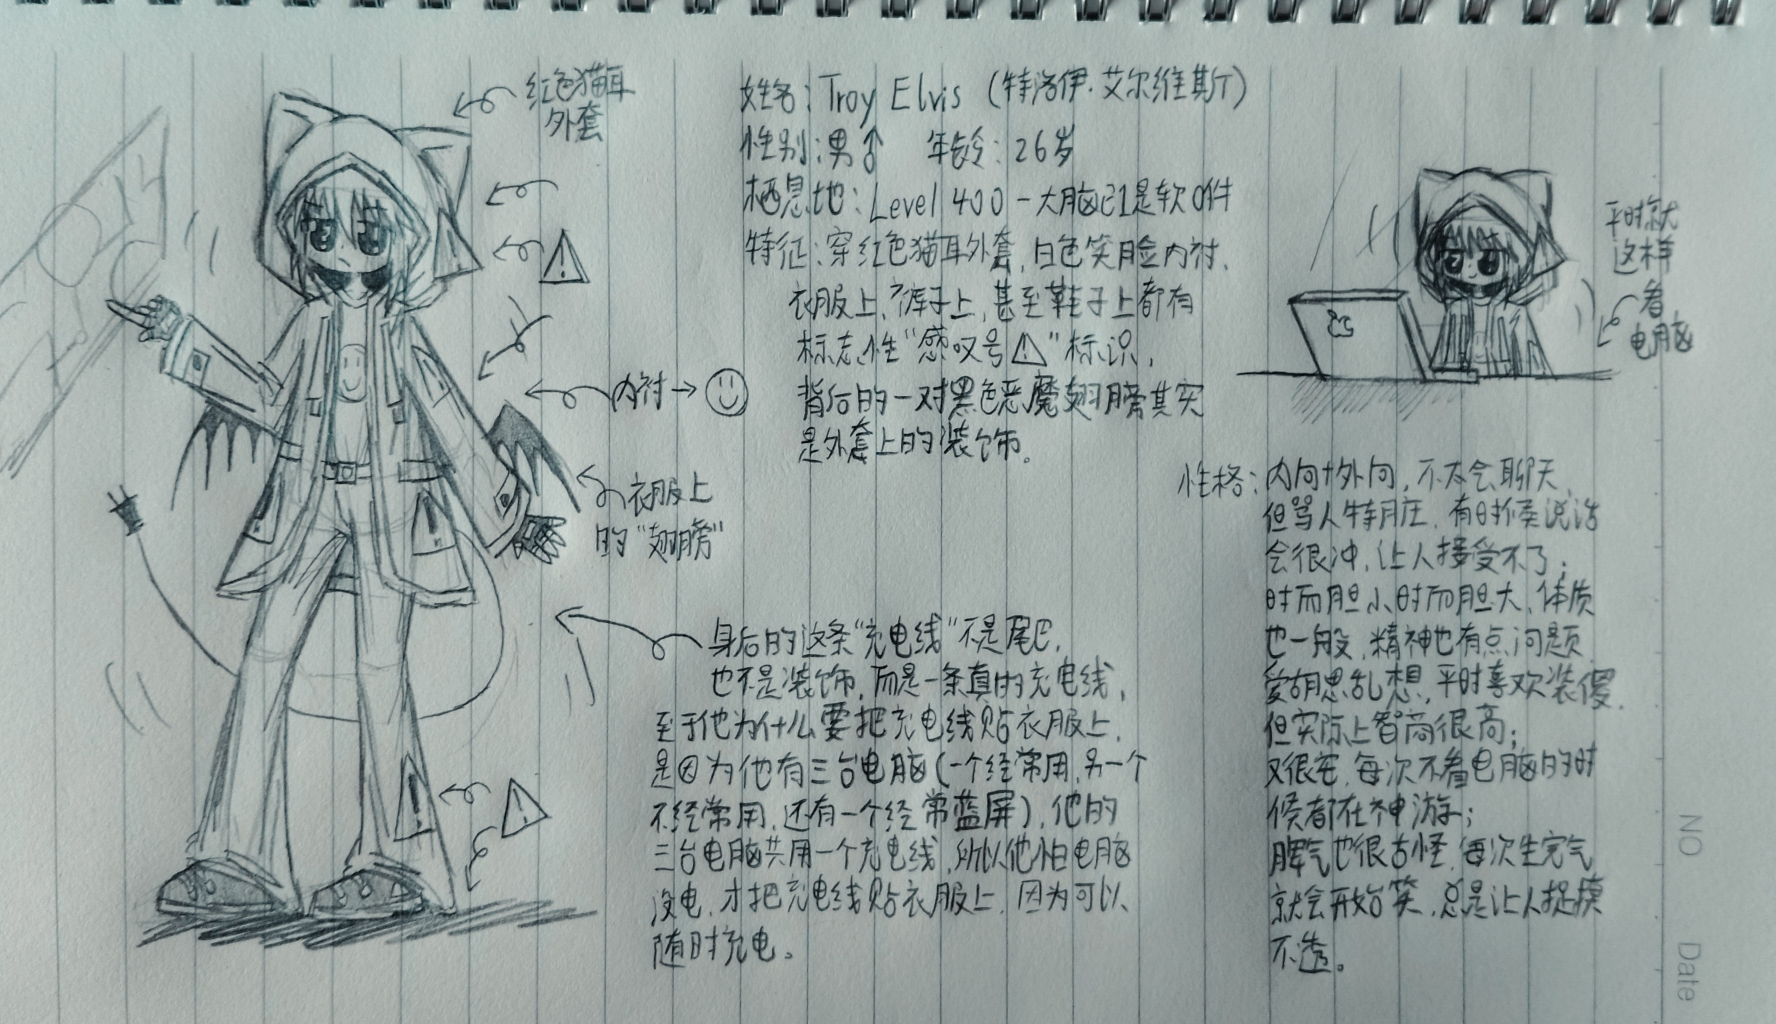 红色猫耳
外套
内衬→
衣服上
的“翅膀”
姓名：Troy Elvis（特洛伊·艾尔维斯）
性别：男♂ 年龄：26岁
栖息地：Level 400 - 大脑已是软0件
特征：穿红色猫耳外套，白色笑脸内衬，
衣服上、裤子上，甚至鞋子上都有
标志性“感叹号⚠”标识，
背后的一对黑色恶魔翅膀其实
是外套上的装饰。
身后的这条“充电线”不是尾巴，
也不是装饰，而是一条真的充电线，
至于他为什么要把充电线贴衣服上，
是因为他有三台电脑（一个经常用，另一个
不经常用，还有一个经常蓝屏），他的
三台电脑共用一个充电线，所以他怕电脑
没电，才把充电线贴衣服上，因为可以
随时充电。
平时就
这样
看
电脑
性格：内向+外向，不太会聊天，
但骂人特脏，有时候说话
会很冲，让人接受不了；
时而胆小时而胆大，体质
也一般，精神也有点问题
爱胡思乱想，平时喜欢装傻，
但实际上智商很高；
又很宅，每次不看电脑的时
候都在神游；
脾气也很古怪，每次生完气
就会开始笑，总是让人捉摸
不透。
NO
Date